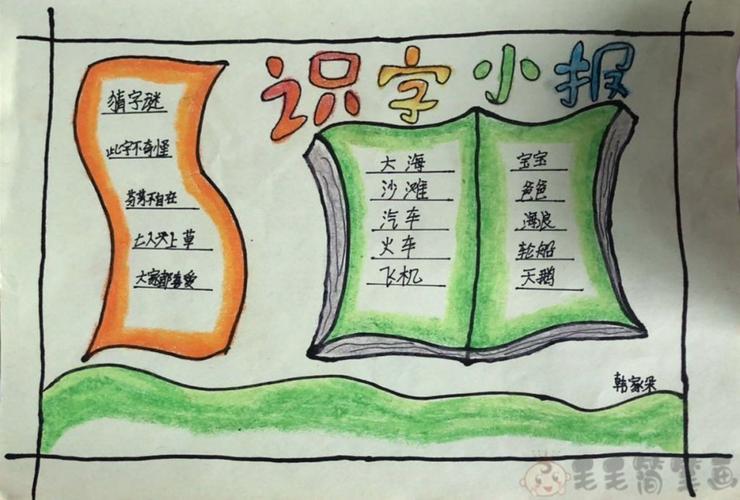 识字小报
猜字谜
此字不奇怪
芳芳不自在
七人头上草
大家都喜爱
大海
沙滩
汽车
火车
飞机
宝宝
爸爸
海浪
轮船
天鹅
韩家朵
毛毛简笔画